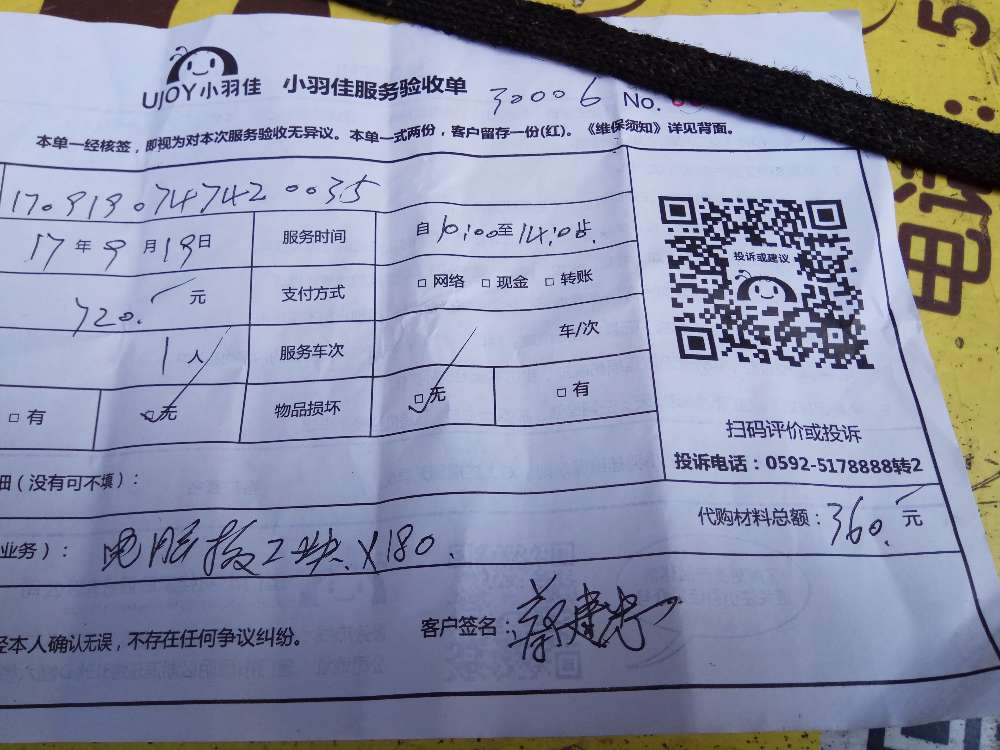 UJOY小羽佳 小羽佳服务验收单 30006 No.
本单一经核签，即视为对本次服务验收无异议。本单一式两份，客户留存一份(红)。《维保须知》详见背面。
170919074742 0035
17年9月19日 服务时间 自10:00至14:00止
720.元 支付方式 □ 网络 □ 现金 □ 转账
投诉或建议
1人 服务车次 车/次
□ 有 □ 无 物品损坏 □ 无 □ 有
扫码评价或投诉
投诉电话：0592-5178888转2
细（没有可不填）：
代购材料总额：360.元
业务）： 电脑板2块X180.
经本人确认无误，不存在任何争议纠纷。 客户签名：
电
5